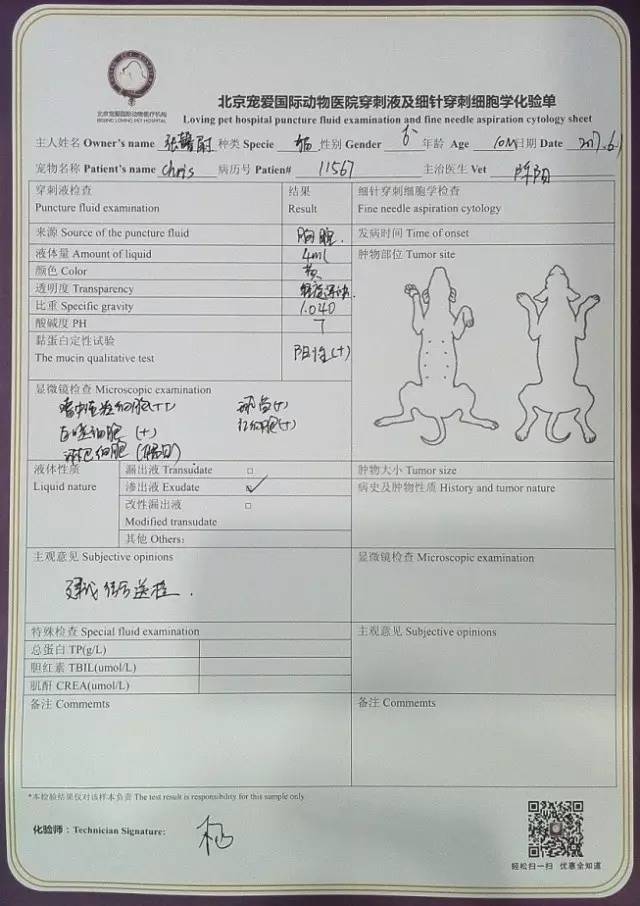 北京宠爱国际动物医疗机构
BEIJING LOVING PET HOSPITAL
北京宠爱国际动物医院穿刺液及细针穿刺细胞学化验单
Loving pet hospital puncture fluid examination and fine needle aspiration cytology sheet
主人姓名 Owner's name 张 尉 种类 Specie 猫 性别 Gender 公 年龄 Age 10M 日期 Date 2017.6.1
宠物名称 Patient's name Chris 病历号 Patien# 11567 主治医生 Vet 阳
穿刺液检查 结果 细针穿刺细胞学检查
Puncture fluid examination Result Fine needle aspiration cytology
来源 Source of the puncture fluid 胸腔. 发病时间 Time of onset
液体量 Amount of liquid 4ml 肿物部位 Tumor site
颜色 Color 黄
透明度 Transparency
比重 Specific gravity 1.040
酸碱度 PH 7
黏蛋白定性试验
The mucin qualitative test 阳性(+)
显微镜检查 Microscopic examination
细胞(++) 球菌(+)
巨噬细胞 (+) 红细胞(+)
淋巴细胞
液体性质 漏出液 Transudate □ 肿物大小 Tumor size
Liquid nature 渗出液 Exudate ✓ 病史及肿物性质 History and tumor nature
改性漏出液 □
Modified transudate
其他 Others:
主观意见 Subjective opinions 显微镜检查 Microscopic examination
建议 送检.
特殊检查 Special fluid examination 主观意见 Subjective opinions
总蛋白 TP(g/L)
胆红素 TBIL(umol/L)
肌酐 CREA(umol/L)
备注 Commemts 备注 Commemts
*本检验结果仅对该样本负责 The test result is responsibility for this sample only
化验师：Technician Signature:
轻松扫一扫 优惠全知道